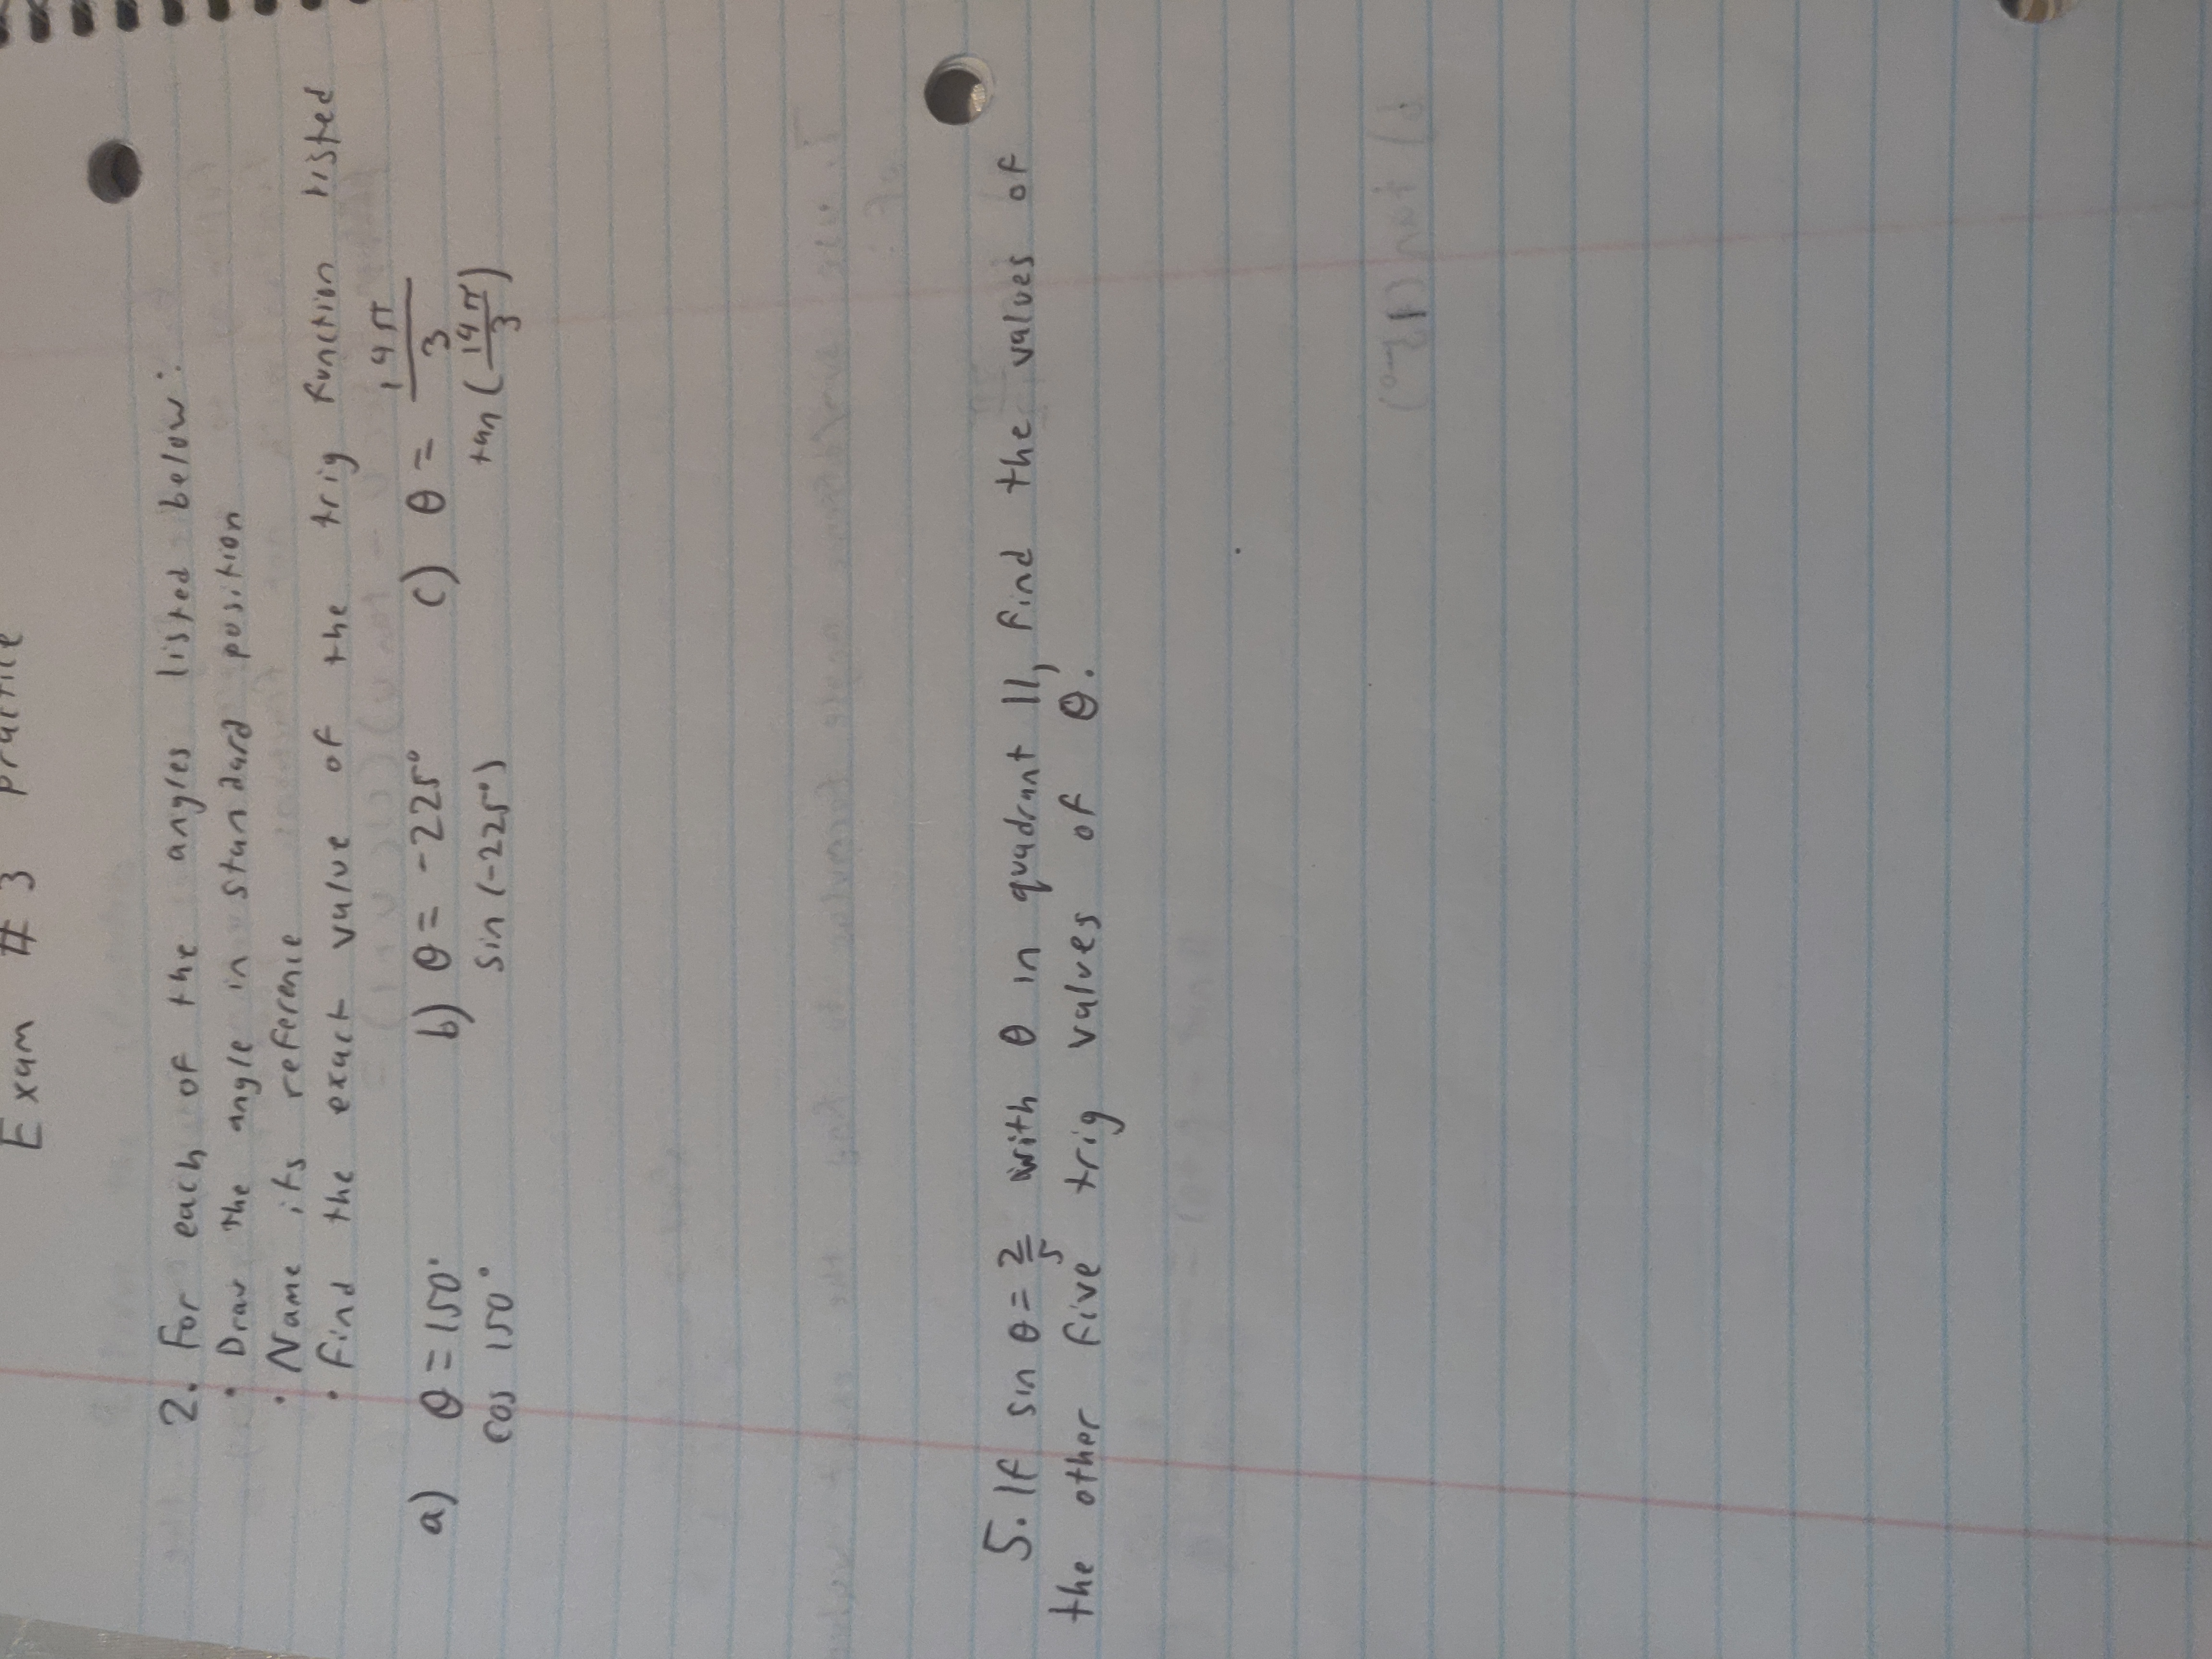 Exam #3 Practice
2. For each of the angles listed below:
• Draw the angle in standard position
• Name its reference
• Find the exact value of the trig function listed
a) θ = 150° b) θ = -225° c) θ = 14π/3
cos 150° sin(-225°) tan(14π/3)
5. If sin θ = 2/5 with θ in quadrant II, find the values of
the other five trig values of θ.